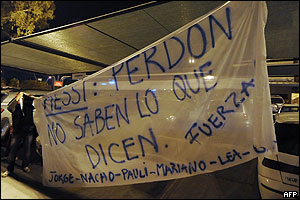 MESSI: PERDON
NO SABEN LO QUE
DICEN. FUERZA
JORGE-NACHO-PAULI-MARIANO-LEA-
AFP